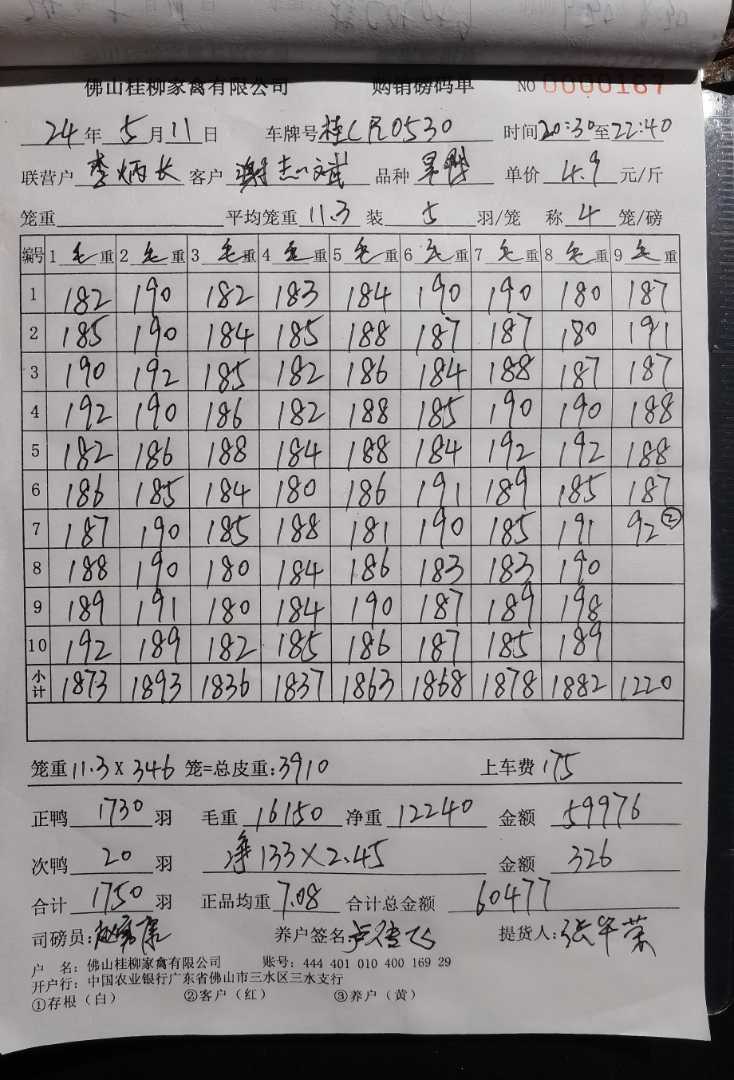 佛山桂柳家禽有限公司 购销磅码单 NO 0000187
24年5月11日 车牌号桂CR0530 时间20:30至22:40
联营户李炳长 客户谢志斌 品种 单价4.9元/斤
笼重 平均笼重11.3装5羽/笼 称4笼/磅
编号 1毛重 2毛重 3毛重 4毛重 5毛重 6毛重 7毛重 8毛重 9毛重
1 182 190 182 183 184 190 190 180 187
2 185 190 184 185 188 187 187 180 191
3 190 192 185 182 186 184 188 187 187
4 192 190 186 182 188 185 190 190 188
5 182 186 188 184 188 184 192 192 188
6 186 185 184 180 186 191 189 185 187
7 187 190 185 188 181 190 185 191 92②
8 188 190 180 184 186 183 183 190
9 189 191 180 184 190 187 189 198
10 192 189 182 185 186 187 185 189
小计 1873 1893 1836 1837 1863 1868 1878 1882 1220
笼重11.3X346笼=总皮重:3910 上车费175
正鸭1730羽 毛重16150净重12240 金额59976
次鸭20羽 净133X2.45 金额326
合计1750羽 正品均重7.08 合计总金额60477
司磅员: 养户签名 提货人:张华荣
户 名:佛山桂柳家禽有限公司 账号:444 401 010 400 169 29
开户行:中国农业银行广东省佛山市三水区三水支行
①存根(白) ②客户(红) ③养户(黄)